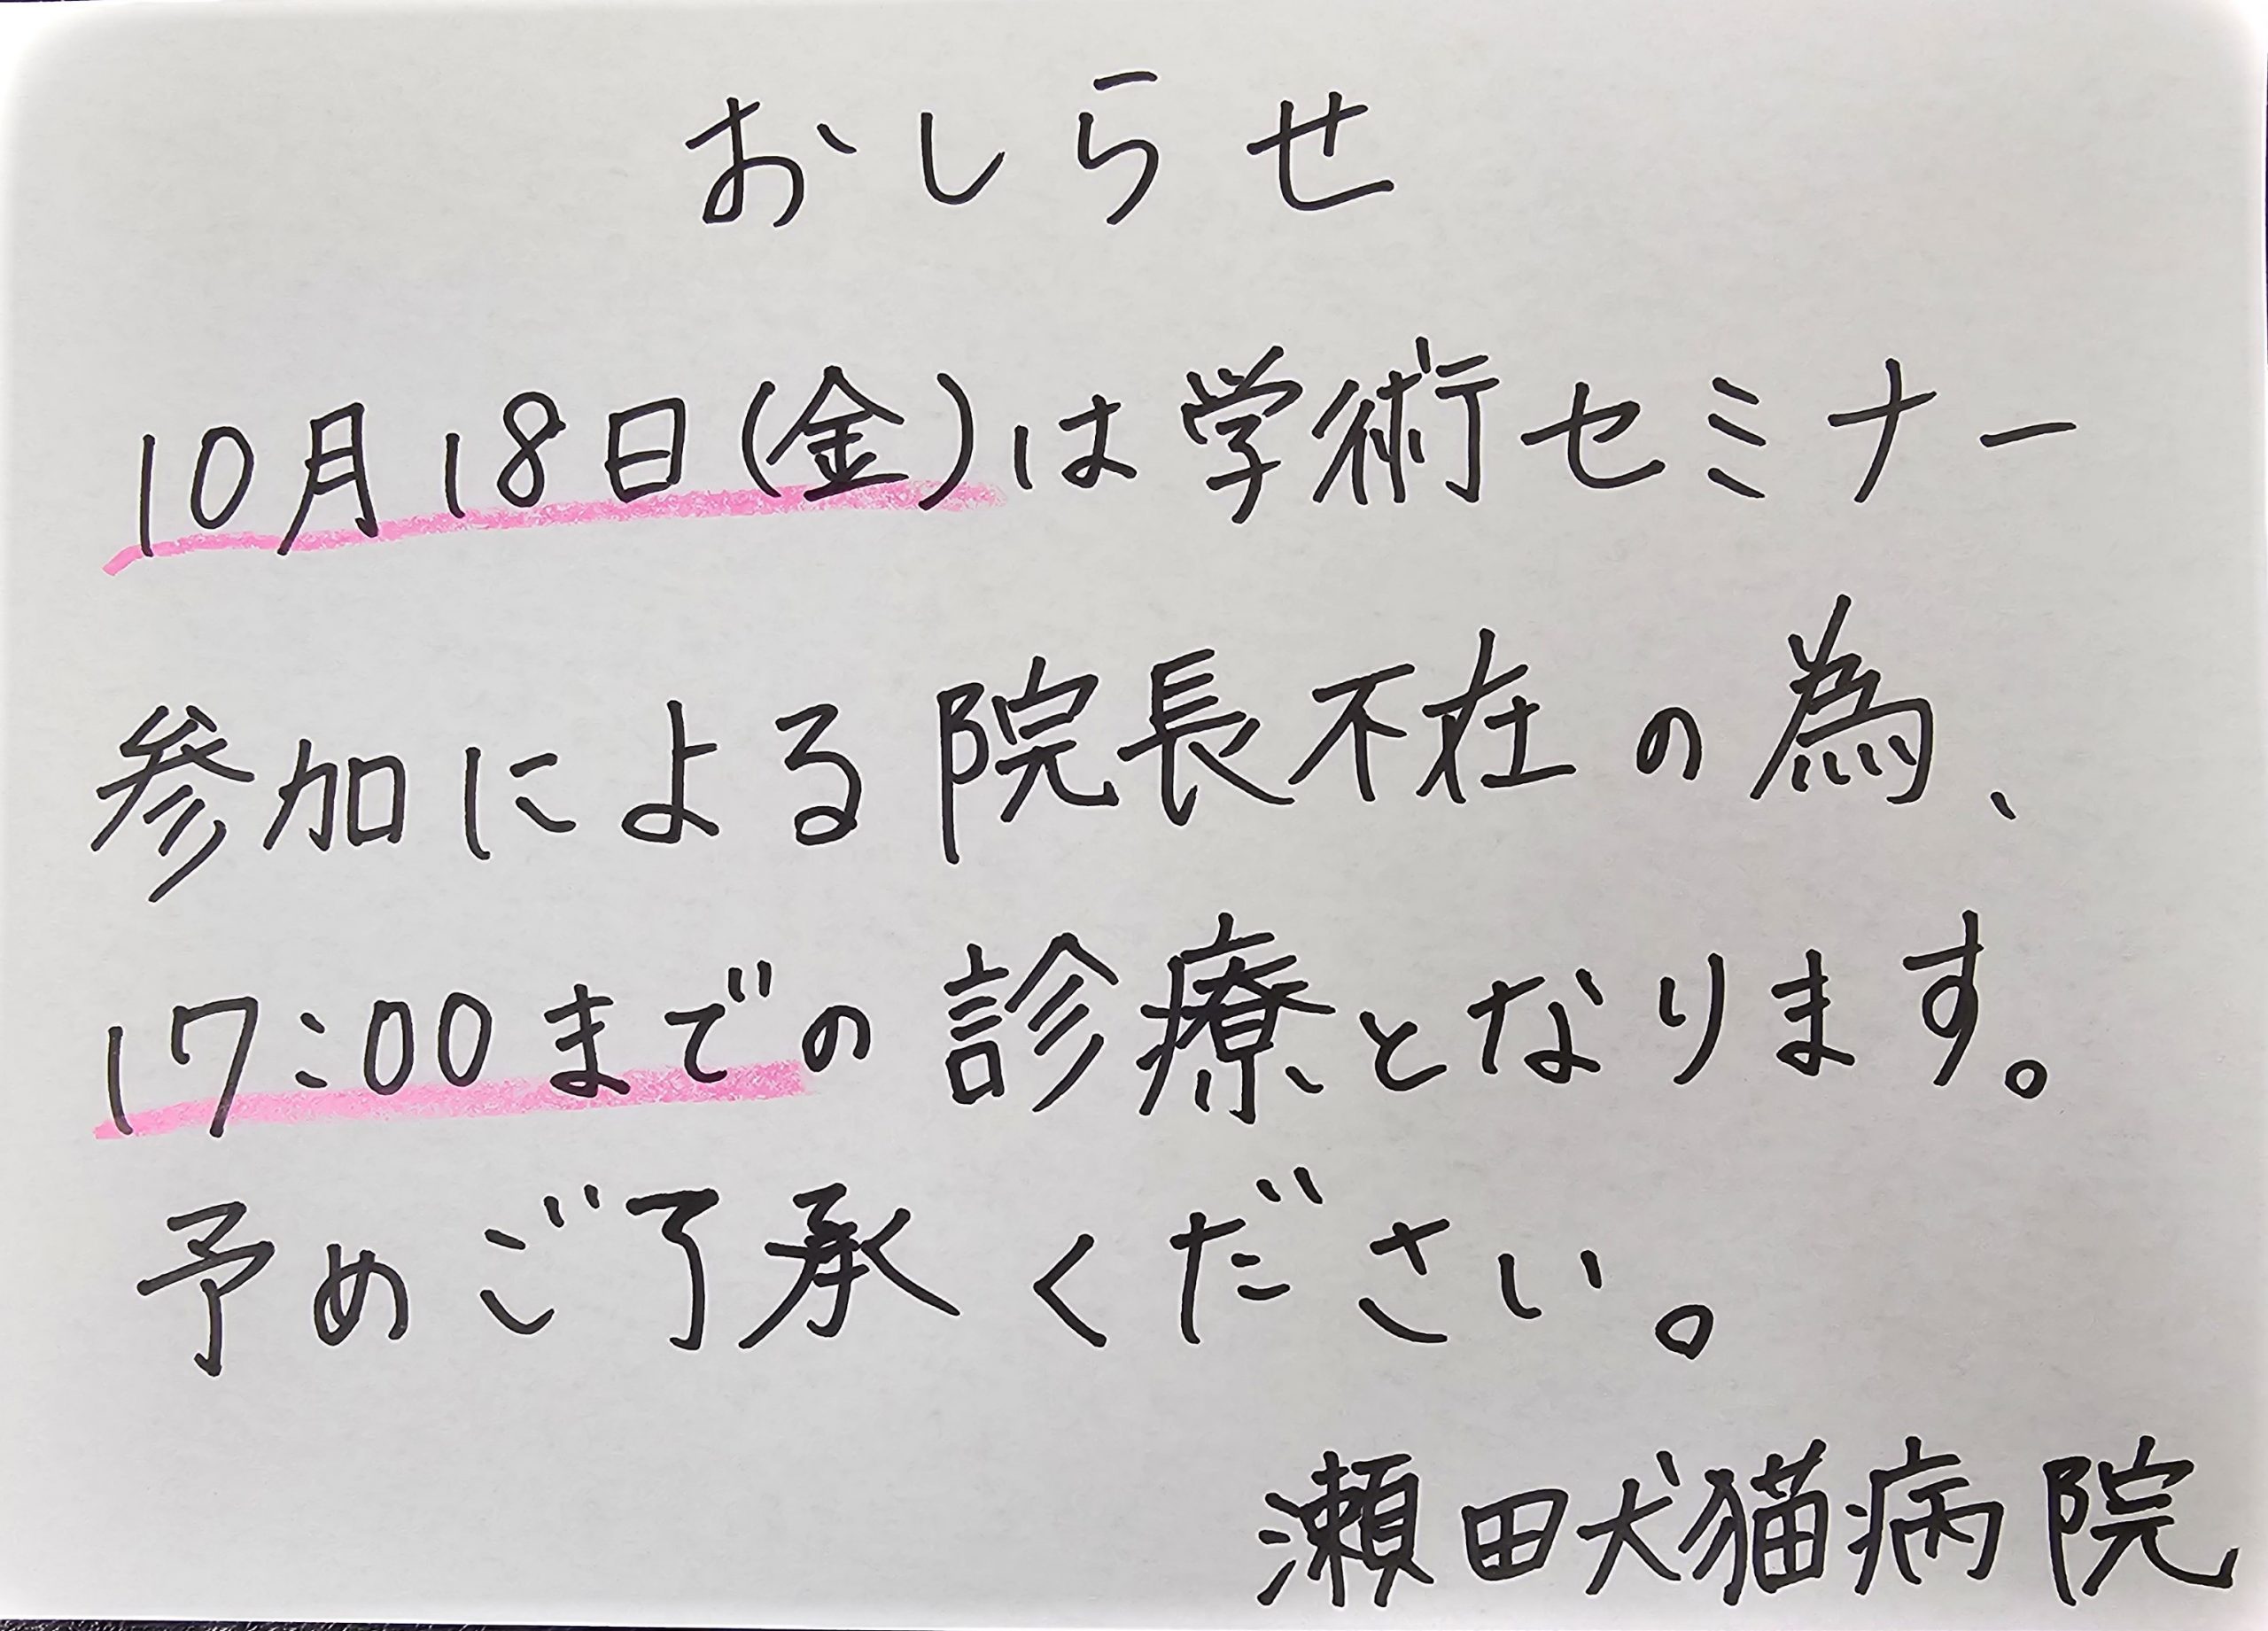 おしらせ
10月18日(金)は学術セミナー
参加による院長不在の為、
17:00までの診療となります。
予めご了承ください。
瀬田犬猫病院